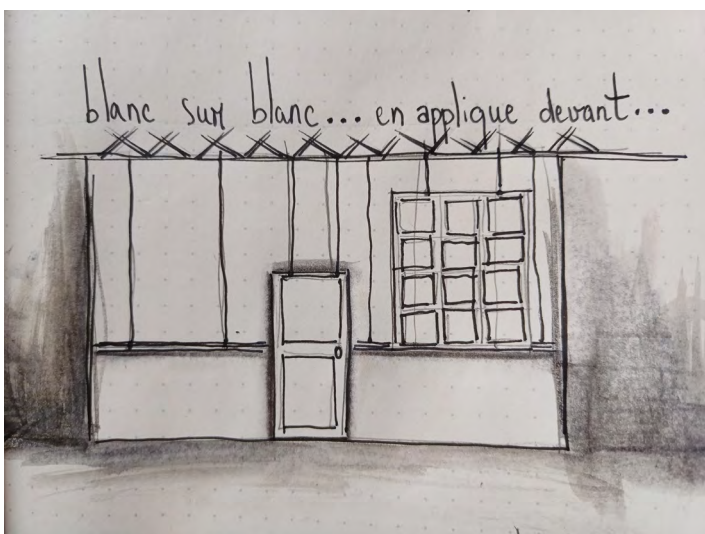 blanc sur blanc... en applique devant...